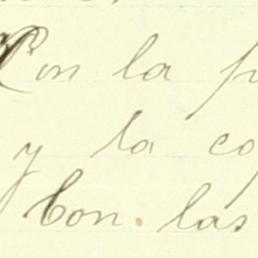 Con la p
y la co
Con. las